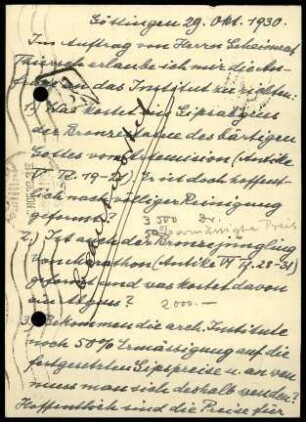 Göttingen 29. Okt. 1930.
Im Auftrag von Herrn Geheimrat
Thiersch erlaube ich mir die An-
frage an das Institut zu richten:
1.) Was kostet ein Gipsabguss
der Bronzestatue des bärtigen
Gottes vom Artemision (Antike
VI T. 19-22) Er ist doch hoffent-
lich nach völliger Reinigung
geformt? 3 500 Dr.
2.) Ist auch der Bronzejüngling
von Marathon (Antike VI T. 28-31)
geformt und was kostet davon
ein Abguss? 2000.-
3.) Bekommen die arch. Institute
noch 50% Ermässigung auf die
festgesetzten Gipspreise u. an wen
muss man sich deshalb wenden?
Hoffentlich sind die Preise für